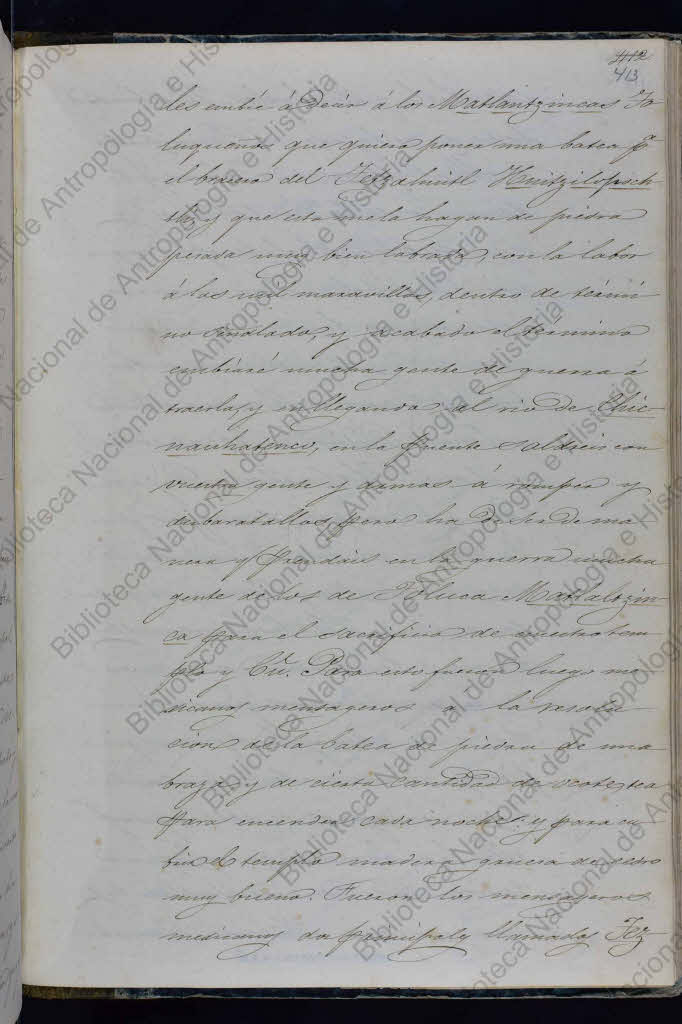 412
413
les embíe á decir á los Matlantzincas To
luqueños que quiero poner una batea pª
el brasero del Tetzahuitl Huitzilopoch
tli, y que esta me la hagan de piedra
pesada muy bien labrada, con la labor
á las mil maravillas, dentro de térmi
no señalado, y acabado el término
embiaré mucha gente de guerra á
traerla, y en llegando al rio de Chic
nauhatenco, en la puente saldreis con
vuestra gente y damas á romper y
desbaratallos, pero ha de ser de ma
nera q̃ prendais en la guerra mucha
gente de los de Toluca Matlaltzin
ca para el sacrificio de nuestro tem
plo y Cú. Para esto fueron luego me
xicanos mensageros a la resolu
cion de la batea de piedra de una
braza y de cierta cantidad de ocote, tea
para encender cada noche y para cu
brir el templo madera gruesa de cedro
muy bueno. Fueron los mensageros
mexicanos dos principales llamados Tez
Biblioteca Nacional de Antropología e Historia